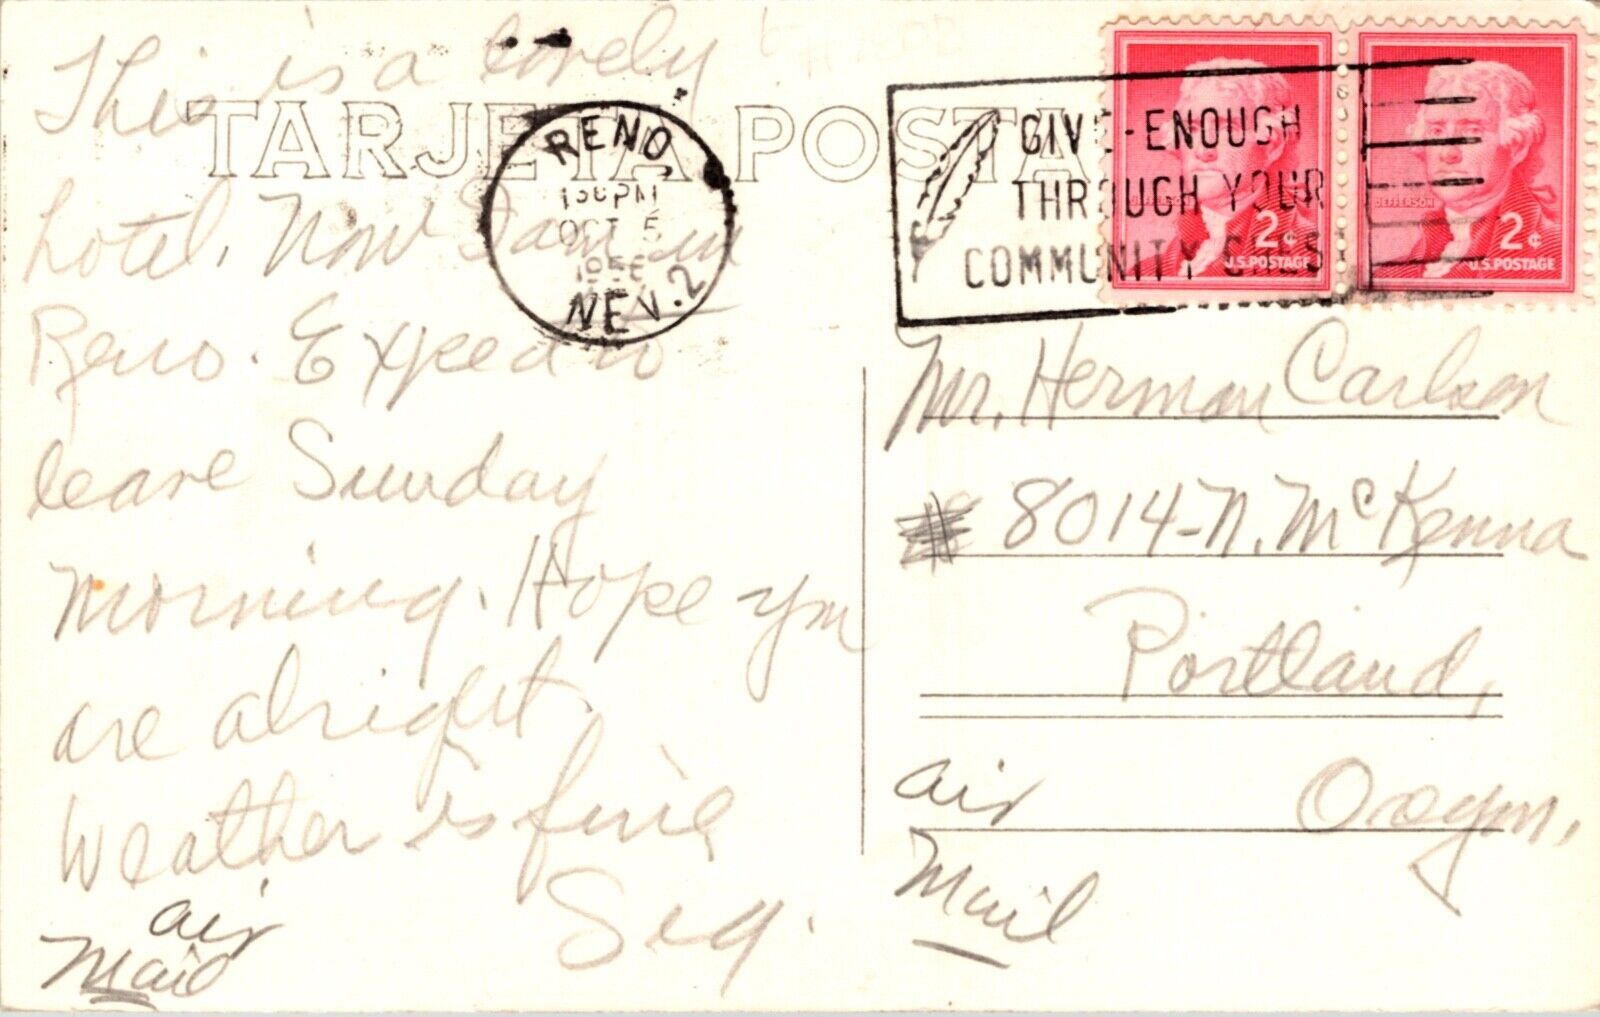 This is a lovely
TARJETA POSTA
hotel. Now I am in
Reno. Exped to
leave Sunday
morning. Hope you
are alright.
Weather is fine
Sig.
air
Mail
RENO
130PM
OCT 5
1956
NEV. 2
GIVE-ENOUGH
THROUGH YOUR
COMMUNITY CHEST
JEFFERSON
2¢
U.S. POSTAGE
JEFFERSON
2¢
U.S. POSTAGE
Mr. Herman Carlson
8014-N. McKenna
Portland,
Oregon.
air
Mail